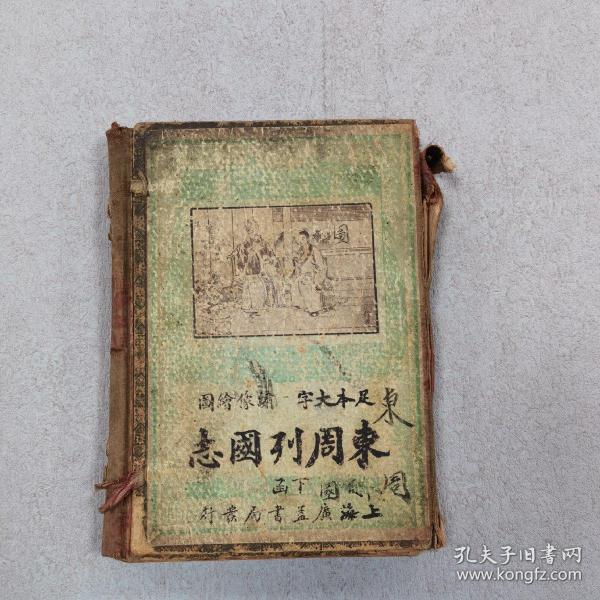 足本大字 繡像繪圖
東周列國志
下函
上海廣益書局發行
東
周
國
孔夫子旧书网
www.kongfz.com